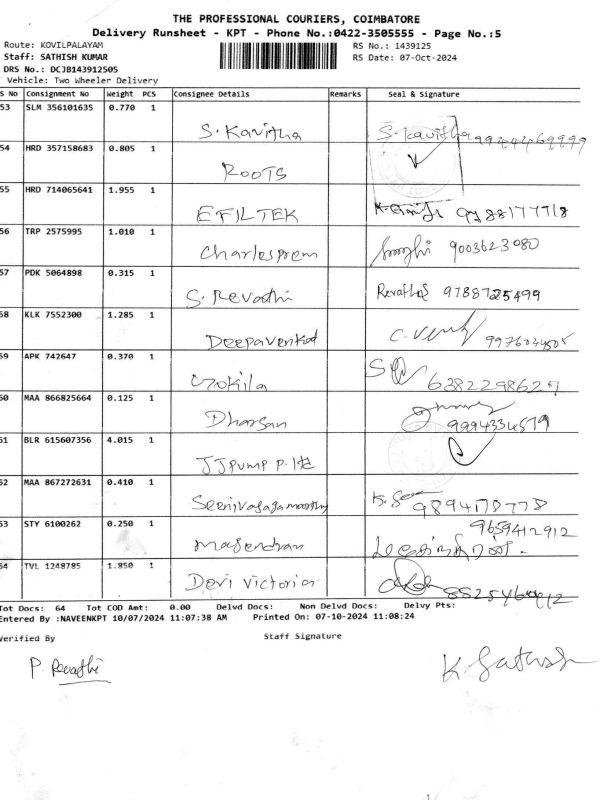 THE PROFESSIONAL COURIERS, COIMBATORE
Delivery Runsheet - KPT - Phone No.:0422-3505555 - Page No.:5
Route: KOVILPALAYAM RS No.: 1439125
Staff: SATHISH KUMAR RS Date: 07-Oct-2024
DRS No.: DCJB143912505
Vehicle: Two Wheeler Delivery
S No Consignment No Weight PCS Consignee Details Remarks Seal & Signature
53 SLM 356101635 0.770 1
S. Kavitha S. Kavitha
54 HRD 357158683 0.805 1
ROOTS
55 HRD 714065641 1.955 1
EFILTEK
56 TRP 2575995 1.010 1
Charlesprem 9003623080
57 PDK 5064898 0.315 1
S. Revathi Revathi 9788725499
58 KLK 7552300 1.285 1
Deepavenkat C. Venk
59 APK 742647 0.370 1
Gokila
60 MAA 866825664 0.125 1
Dharsan
61 BLR 615607356 4.015 1
JJpump p. Ltd
62 MAA 867272631 0.410 1
Seenivasagamoorthy 9894178778
63 STY 6100262 0.250 1 9659412912
Magendran
64 TVL 1248785 1.850 1
Devi Victoria
Tot Docs: 64 Tot COD Amt: 0.00 Delvd Docs: Non Delvd Docs: Delvy Pts:
Entered By :NAVEENKPT 10/07/2024 11:07:38 AM Printed On: 07-10-2024 11:08:24
Verified By Staff Signature
P. Revathi K. Sathish